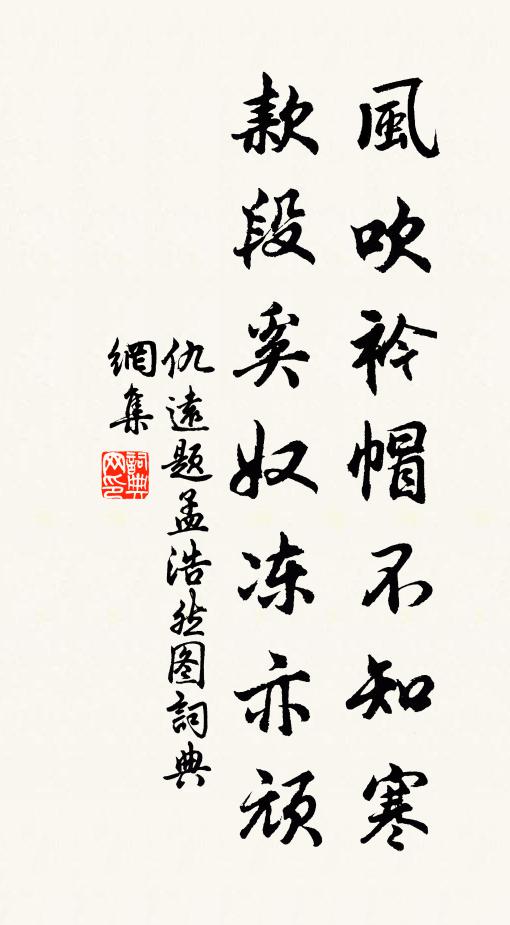 風吹衿帽不知寒
款段奚奴冻亦顽
仇遠题孟浩然图詞典
網集
詞典网印